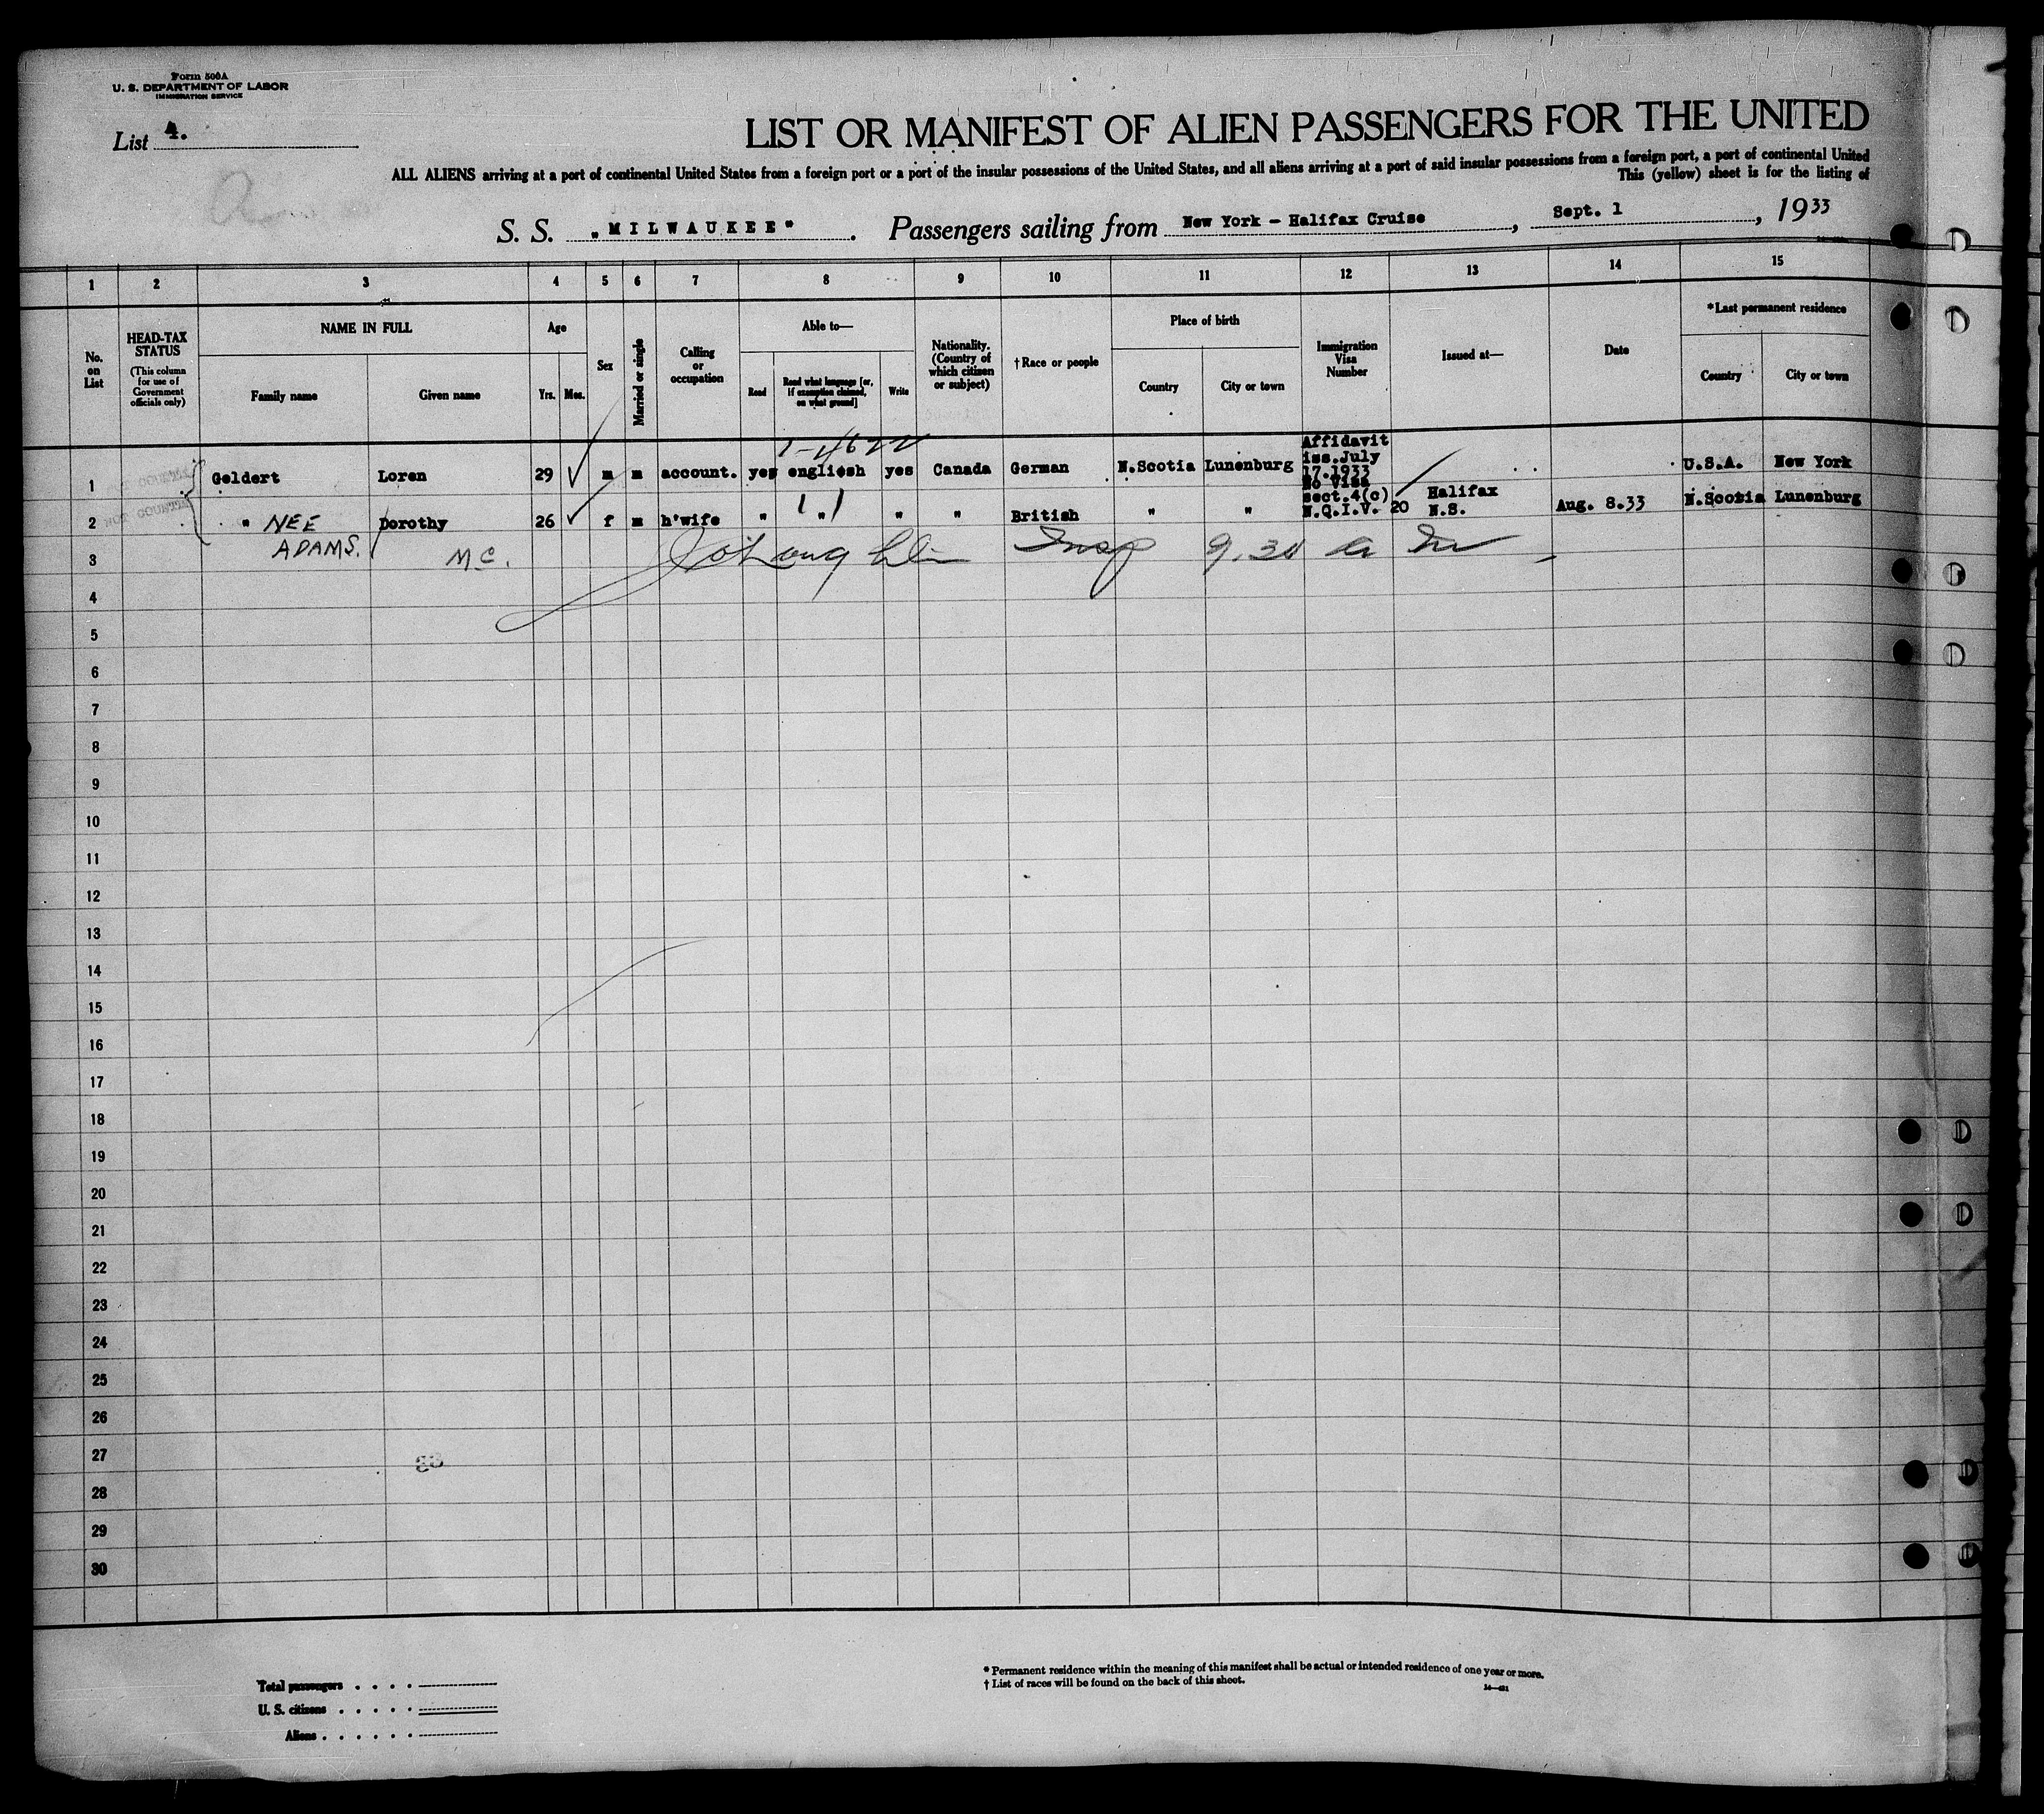 Form 500A
U. S. DEPARTMENT OF LABOR
IMMIGRATION SERVICE
List 4.
LIST OR MANIFEST OF ALIEN PASSENGERS FOR THE UNITED
ALL ALIENS arriving at a port of continental United States from a foreign port or a port of the insular possessions of the United States, and all aliens arriving at a port of said insular possessions from a foreign port, a port of continental United
This (yellow) sheet is for the listing of
S. S. "MILWAUKEE". Passengers sailing from New York - Halifax Cruise, Sept. 1, 1933
1 2 3 4 5 6 7 8 9 10 11 12 13 14 15
No. on List
HEAD-TAX STATUS
(This column for use of Government officials only)
NAME IN FULL
Family name Given name
Age
Yrs. Mos.
Sex
Married or single
Calling or occupation
Able to—
Read
Read what language [or, if exemption claimed, on what ground]
Write
Nationality. (Country of which citizen or subject)
† Race or people
Place of birth
Country City or town
Immigration Visa Number
Issued at—
Date
*Last permanent residence
Country City or town
1-4622
Affidavit
iss.July
17.1933
1 Geldert Loren 29 m m account. yes engliesh yes Canada German N.Scotia Lunenburg U.S.A. New York
No Visa
sect.4(c)
N.Q.I.V. 20
2 " NEE Dorothy 26 f m h'wife " " " " British " " Halifax N.S. Aug. 8.33 N.Scotia Lunenburg
ADAMS.
3 Mc. Insp 9.30 a m
4
5
6
7
8
9
10
11
12
13
14
15
16
17
18
19
20
21
22
23
24
25
26
27
28
29
30
Total passengers
U. S. citizens
Aliens
* Permanent residence within the meaning of this manifest shall be actual or intended residence of one year or more.
† List of races will be found on the back of this sheet.